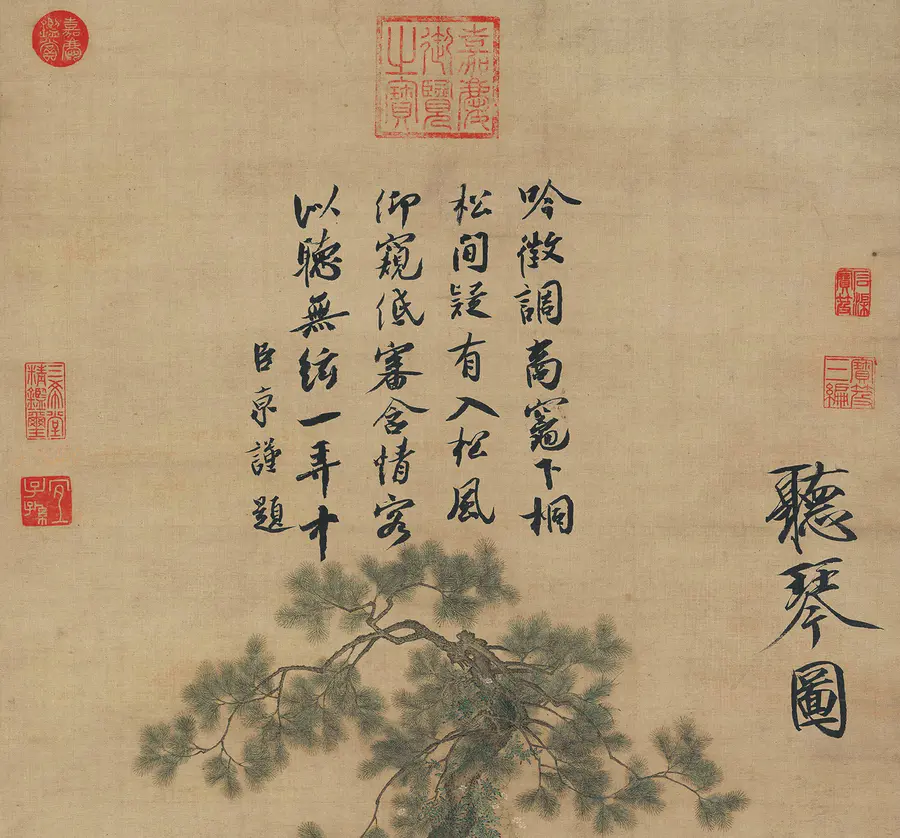 聽琴圖
吟徵調商竈下桐
松間疑有入松風
仰窺低審含情客
似聽無絃一弄中
臣京謹題
嘉慶御覽之寶
嘉慶鑑賞
石渠寶笈
寶笈三編
三希堂精鑑璽
宜子孫